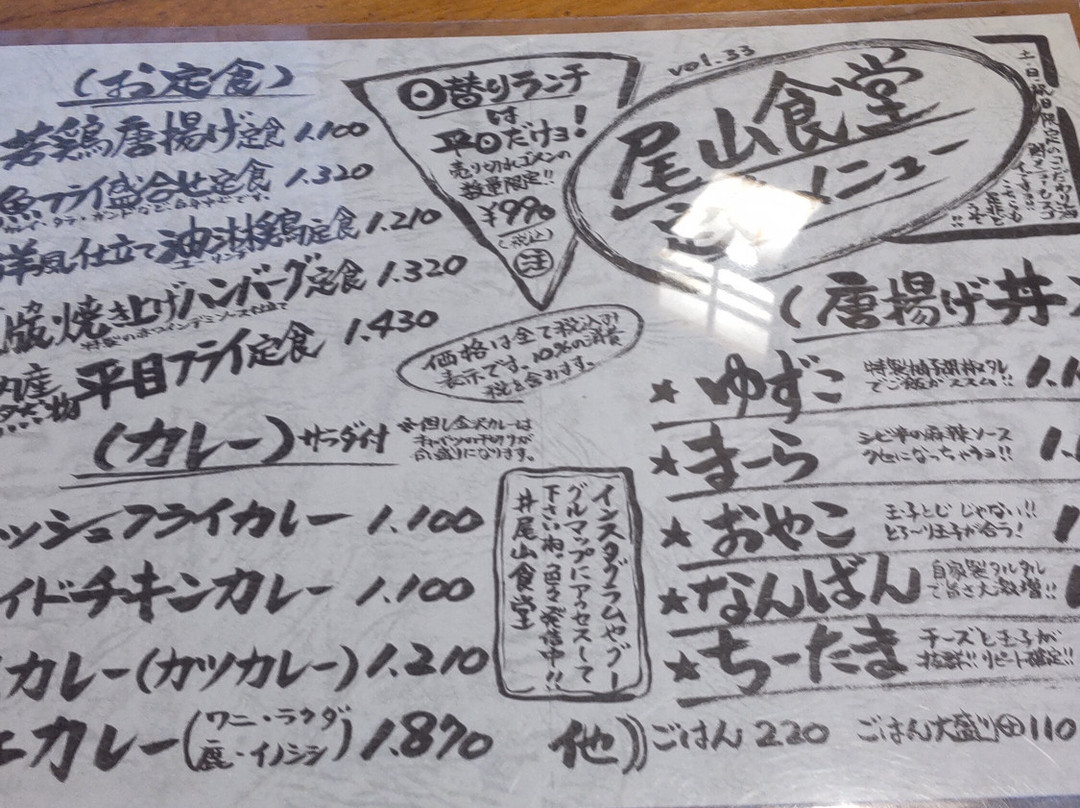 (お定食)
若鶏唐揚げ定食 1.100
魚フライ盛合せ定食 1.320
洋風仕立て油淋鶏定食 1.210
焼き上げハンバーグ定食 1.320
平目フライ定食 1.430
(カレー)サラダ付
※但し金沢カレーは
キャベツの千切りが
合い盛りになります。
ッシュフライカレー 1.100
イドチキンカレー 1.100
カレー(カツカレー) 1.210
カレー(ワニ・ラクダ
鹿・イノシシ) 1.870
日替りランチ
は
平日だけョ!
売り切れゴメンの
数量限定!!
¥990
(税込)
注
価格は全て税込み
表示です。10%の消費
税を含みます。
インスタグラムやグー
グルマップにアクセスして
下さいね 色々発信中!!
井尾山食堂
vol.33
尾山食堂
メニュー
土・日・祝日限定の
(唐揚げ丼
★ゆずこ
でご飯がススム!! 1.1
★まーら
シビ辛の麻辣ソース
クセになっちゃョ!!
★おやこ
玉子とじじゃない!!
とろ~り玉子が合う!
★なんばん
自家製タルタル
で旨さ激増!!
★ちーたま
チーズと玉子が
抜群!!リピート確定!!
他)) ごはん 220 ごはん大盛り⊕110